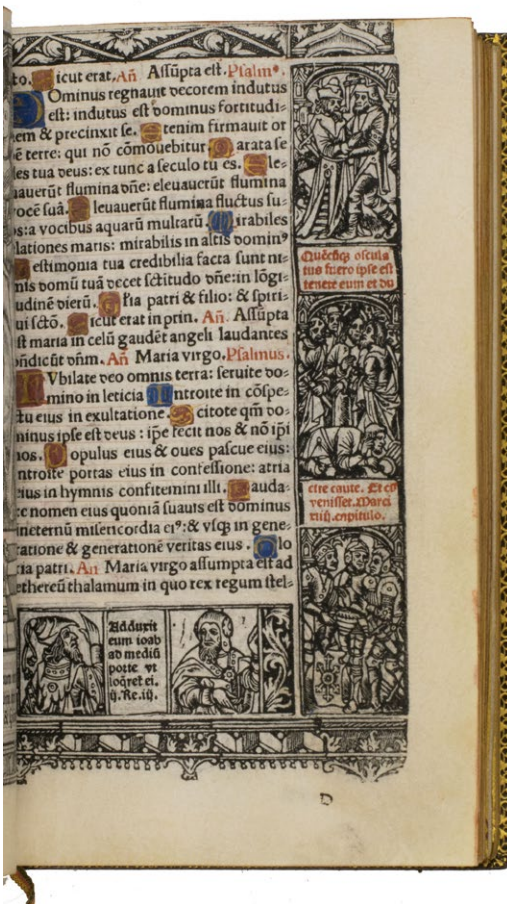 to. Sicut erat. Añ Assũpta est. Psalmꝰ.
Dominus regnauit decorem indutus
est: indutus est dominus fortitudi-
em & precinxit se. Etenim firmauit or
ẽ terre: qui nõ cõmouebitur. Parata se
es tua deus: ex tunc a seculo tu es. Ele-
auerũt flumina dñe: eleuauerũt flumina
ocẽ suã. Eleuauerũt flumina fluctus su-
s: a vocibus aquarũ multarũ. Mirabiles
lationes maris: mirabilis in altis dominꝰ
Testimonia tua credibilia facta sunt ni-
mis domũ tuã decet sctitudo dñe: in lõgi-
udinẽ dierũ. Glia patri & filio: & spiri-
ui sctõ. Sicut erat in prin. Añ. Assũpta
st maria in celũ gaudẽt angeli laudantes
ñdicũt dñm. Añ Maria virgo. Psalmus.
IVbilate deo omnis terra: seruite do-
mino in leticia Introite in cõspe-
ctu eius in exultatione. Scitote qm̃ do-
minus ipse est deus: ip̃e fecit nos & nõ ip̃i
nos. Populus eius & oues pascue eius:
ntroite portas eius in confessione: atria
eius in hymnis confitemini illi. Lauda-
te nomen eius quoniã suauis est dominus
ineternũ misericordia eiꝰ: & vsqꝫ in gene-
ratione & generationẽ veritas eius. Glo
ria patri. Añ Maria virgo assumpta est ad
ethereũ thalamum in quo rex regum stel-
Quẽcũqꝫ oscula
tus fuero ipse est
tenete eum et du
cite caute. Et cõ
venisset. Marci
xiiij. capitulo.
Adduxit
eum ioab
ad mediũ
porte vt
loq̃ret ei.
ij. Re. iij.
D